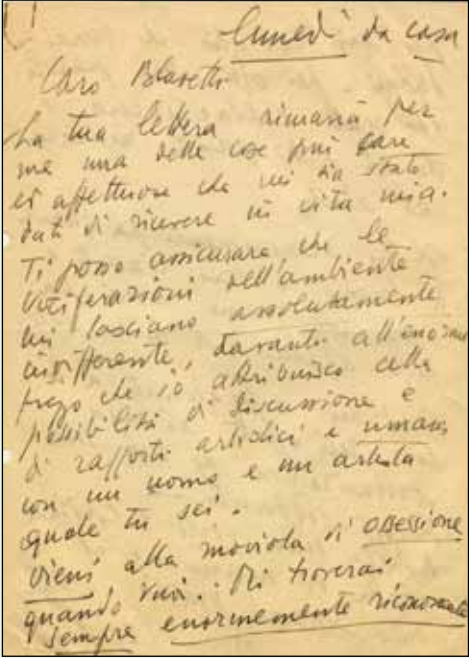 Lunedì da casa
Caro Blasetti
La tua lettera rimarrà per
me una delle cose più care
ed affettuose che mi sia stato
dato di ricevere in vita mia.
Ti posso assicurare che le
vociferazioni dell'ambiente
mi lasciano assolutamente
indifferente, davanti all'enorme
pregio che io attribuisco alla
possibilità di discussione e
di rapporti artistici e umani
con un uomo e un artista
quale tu sei.
Vieni alla moviola di Ossessione
quando vuoi. Mi troverai
sempre enormemente riconoscente